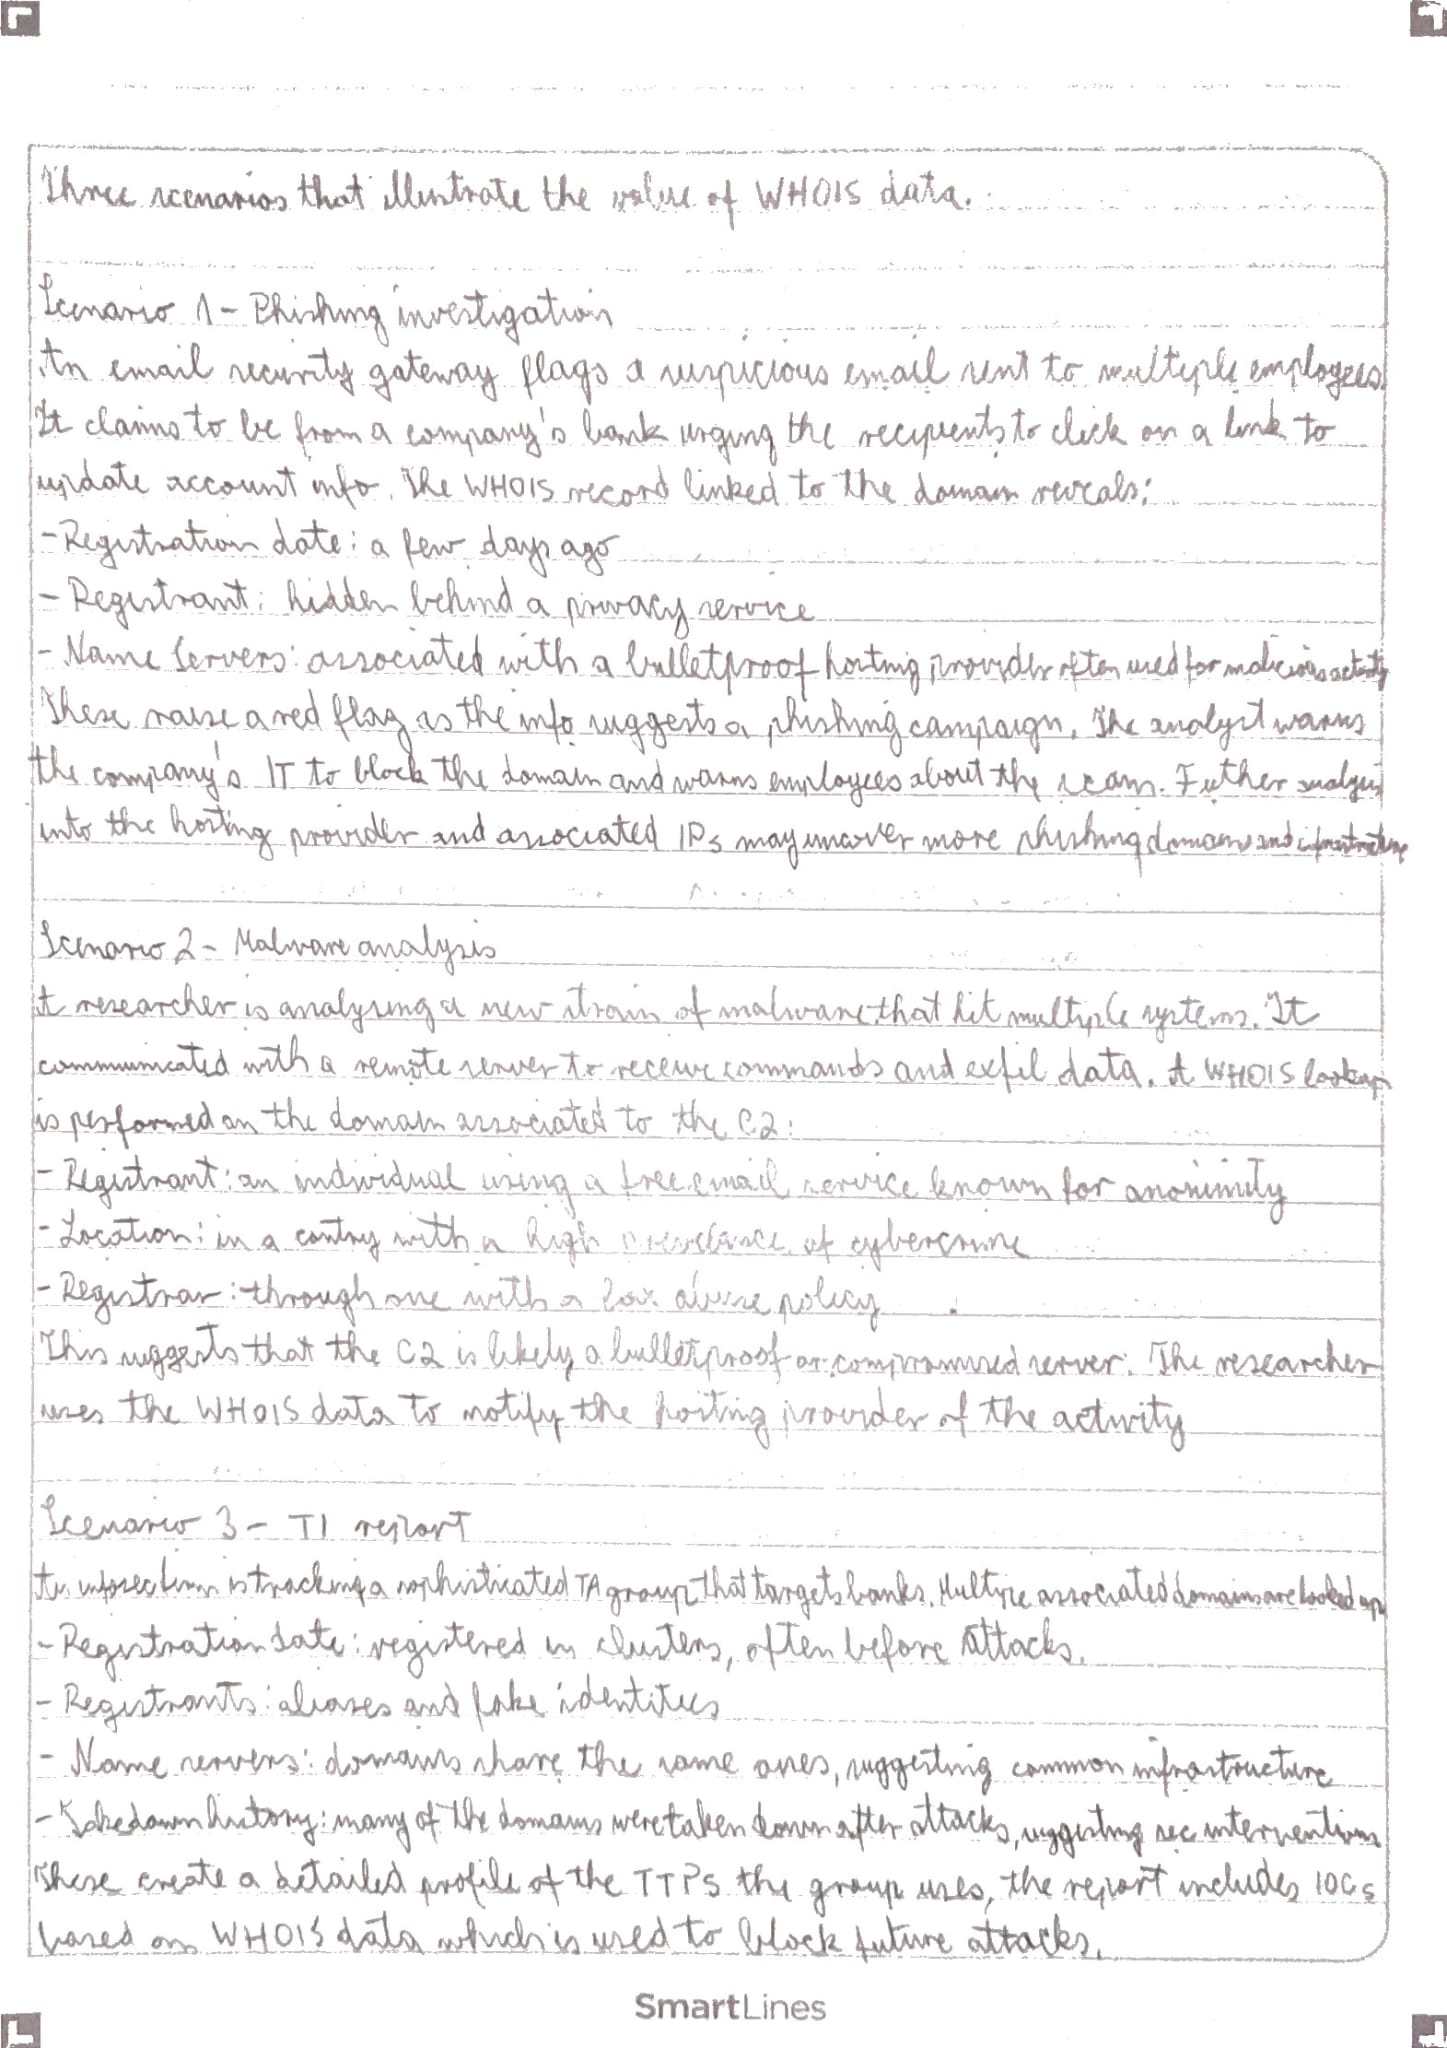 Three scenarios that illustrate the value of WHOIS data.
Scenario 1 - Phishing investigation
An email security gateway flags a suspicious email sent to multiple employees.
It claims to be from a company's bank urging the recipients to click on a link to
update account info. The WHOIS record linked to the domain reveals:
- Registration date: a few days ago
- Registrant: hidden behind a privacy service
- Name Servers: associated with a bulletproof hosting provider often used for malicious activity
These raise a red flag as the info suggests a phishing campaign. The analyst warns
the company's IT to block the domain and warns employees about the scam. Futher analysis
into the hosting provider and associated IPs may uncover more phishing domains and infrastructure
Scenario 2 - Malware analysis
A researcher is analysing a new strain of malware that hit multiple systems. It
communicated with a remote server to receive commands and exfil data. A WHOIS lookup
is performed on the domain associated to the C2:
- Registrant: an individual using a free email service known for anonimity
- Location: in a contry with a high prevelance of cybercrime
- Registrar: through one with a lax abuse policy
This suggests that the C2 is likely a bulletproof or compromised server. The researcher
uses the WHOIS data to notify the hosting provider of the activity
Scenario 3 - TI report
An infosec firm is tracking a sophisticated TA group that targets banks. Multiple associated domains are looked up
- Registration date: registered in clusters, often before attacks.
- Registrants: aliases and fake identities
- Name servers: domains share the same ones, suggesting common infrastructure
- Takedown history: many of the domains were taken down after attacks, suggesting sec interventions
These create a detailed profile of the TTPs the group uses, the report includes IOCs
based on WHOIS data which is used to block future attacks.
SmartLines